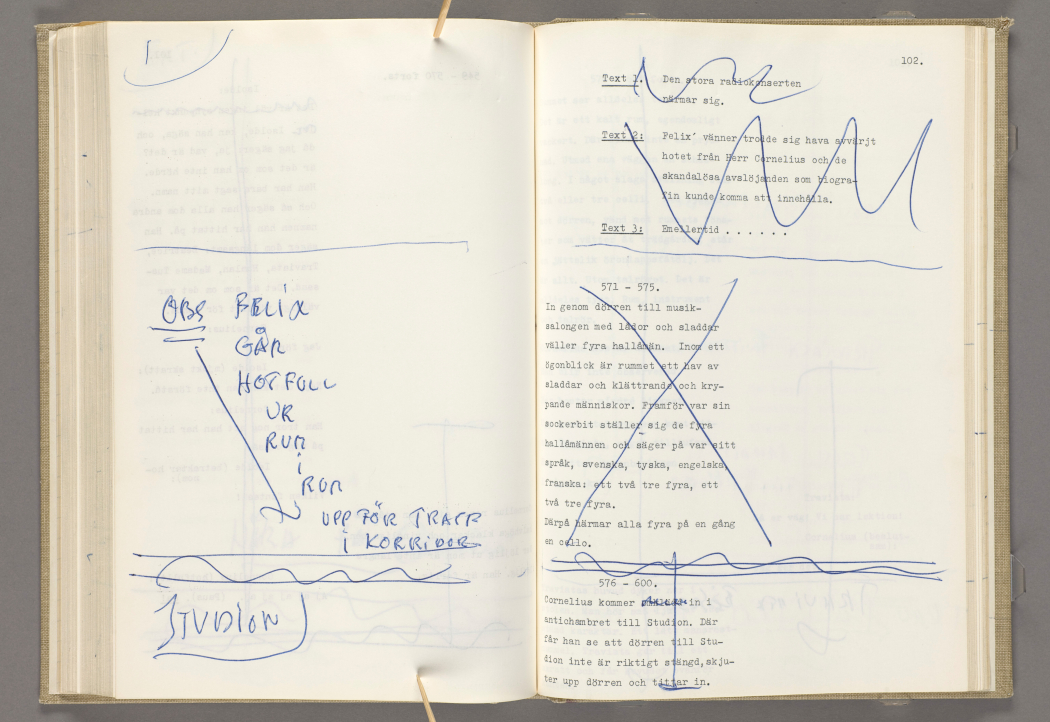 OBS FELIX
GÅR
HOTFULL
UR
RUM
i
RUM
UPPFÖR TRAPP
i KORRIDOR
STUDION
102.
Text 1. Den stora radiokonserten
närmar sig.
Text 2: Felix' vänner trodde sig hava avvärjt
hotet från Herr Cornelius och de
skandalösa avslöjanden som biogra-
fin kunde komma att innehålla.
Text 3: Emellertid . . . . . .
571 - 575.
In genom dörren till musik-
salongen med lådor och sladdar
väller fyra hallåmän. Inom ett
ögonblick är rummet ett hav av
sladdar och klättrande och kry-
pande människor. Framför var sin
sockerbit ställer sig de fyra
hallåmännen och säger på var sitt
språk, svenska, tyska, engelska,
franska: ett två tre fyra, ett
två tre fyra.
Därpå härmar alla fyra på en gång
en cello.
576 - 600.
Cornelius kommer in i
antichambret till Studion. Där
får han se att dörren till Stu-
dion inte är riktigt stängd, skju-
ter upp dörren och tittar in.